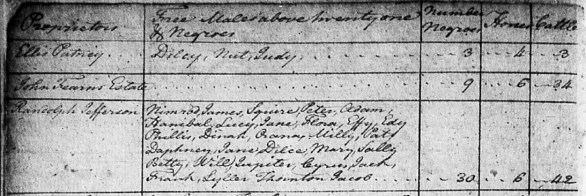 Proprietors Free Males above twenty one & Negroes Number Negroes Horses Cattle
Ellis Putney Dilcy, Nut, Judy, 3 4 3
John Fearns Estate 9 6 34
Randolph Jefferson Nimrod, James, Squire, Peter, Adam,
Hanibal, Lucy, Jane, Flora, Effy, Edy
Phillis, Dinah, Orana, Milly, Patt
Daphney, Jane, Dilce, Mary, Sally
Betty, Will, Jupiter, Cyrus, Jack,
Frank, Thornton, Jacob. 30 6 42